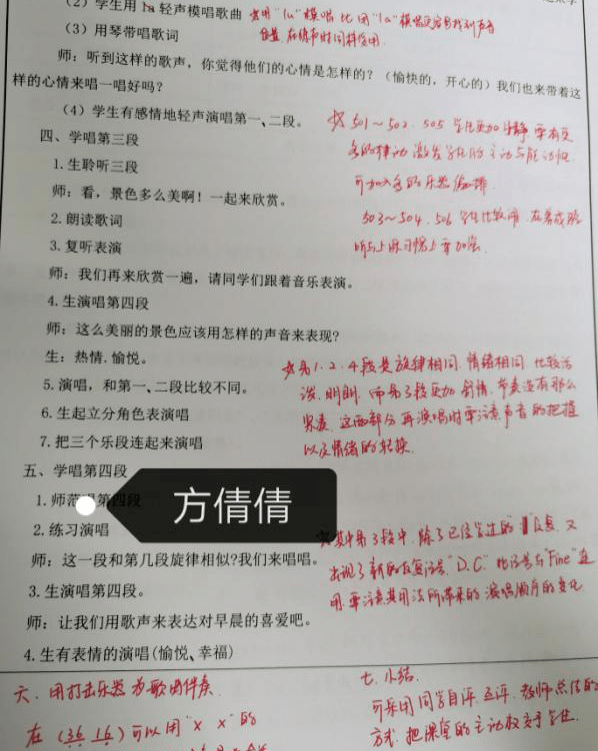 (2) 学生用 la 轻声模唱歌曲
☆用"lu"模唱 比用"la"模唱更容易找到声音
位置,在练声时同样适用
(3) 用琴带唱歌词
师:听到这样的歌声,你觉得他们的心情是怎样的?(愉快的,开心的)我们也来带着这
样的心情来唱一唱好吗?
(4) 学生有感情地轻声演唱第一、二段。
☆501~502、505 学生更加安静,要有更
多的律动 激发学生的主动与能动性
可加入多的乐器伴奏
四、学唱第三段
1.生聆听三段
师:看,景色多么美啊!一起来欣赏。
503~504、506 学生比较闹,在养成聆
听与上课习惯上要加强
2.朗读歌词
3.复听表演
师:我们再来欣赏一遍,请同学们跟着音乐表演。
4.生演唱第四段
师:这么美丽的景色应该用怎样的声音来表现?
生:热情.愉悦。
☆第1.2.4段是旋律相同,情绪相同,比较活
泼、明朗,而第3段更加 抒情,节奏没有那么
紧凑,这两部分 再演唱时要注意声音的把握
以及情绪的转换
5.演唱,和第一、二段比较不同。
6.生起立分角色表演唱
7.把三个乐段连起来演唱
五、学唱第四段
1.师范唱第四段
方倩倩
2.练习演唱
☆其中第3段中,除了已经学过的 反复,又
出现了新的反复记号"D.C."此记号与"Fine"连
用,要注意其用法所带来的演唱顺序的变化
师:这一段和第几段旋律相似?我们来唱唱。
3.生演唱第四段。
师:让我们用歌声来表达对早晨的喜爱吧。
4.生有表情的演唱(愉悦、幸福)
六、用打击乐器为歌曲伴奏
在 (36 16) 可以用"x x"的
七、小结
可采用同学自评、互评、教师总结的
方式 把课堂的主动权交于学生